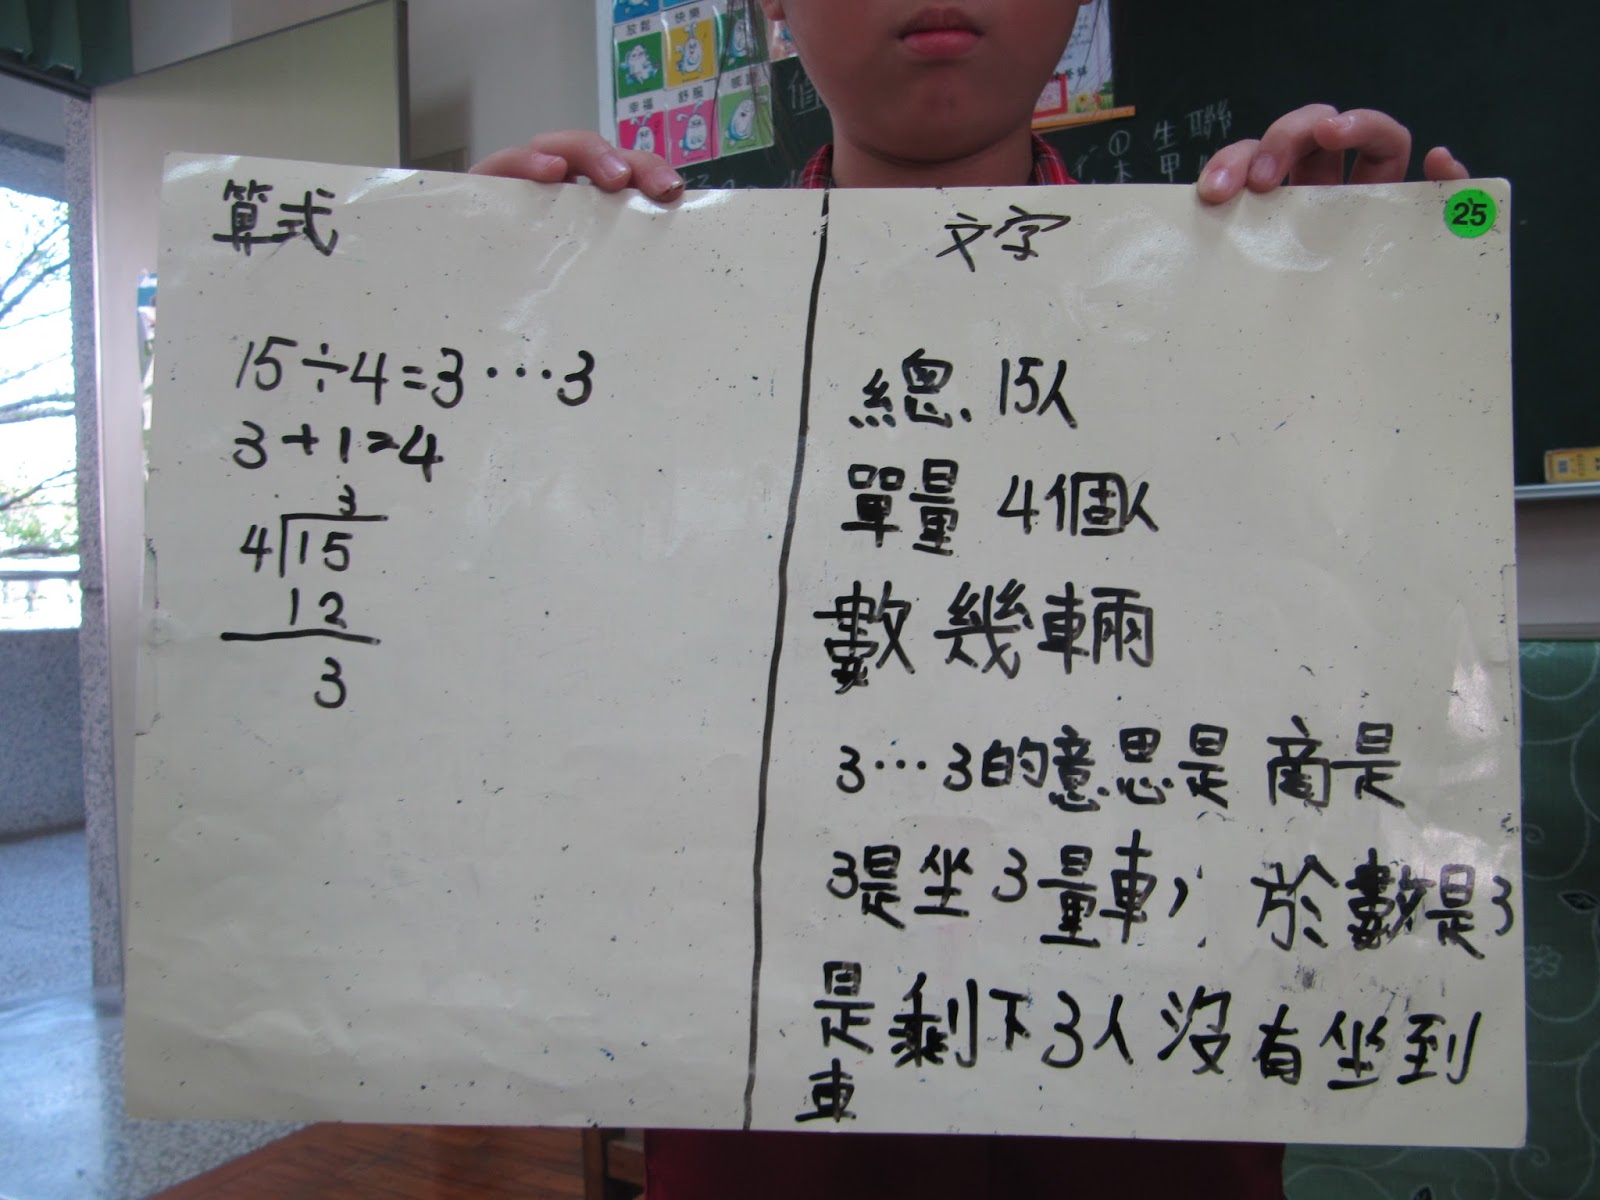 放鬆
快樂
幸福
舒服
① 生聯
木甲
25
算式
15÷4=3…3
3+1=4
3
4 15
12
3
文字
總 15人
單量 4個人
數 幾輛
3…3的意思是 商是
3是坐3量車, 於數是3
是剩下3人沒有坐到
車